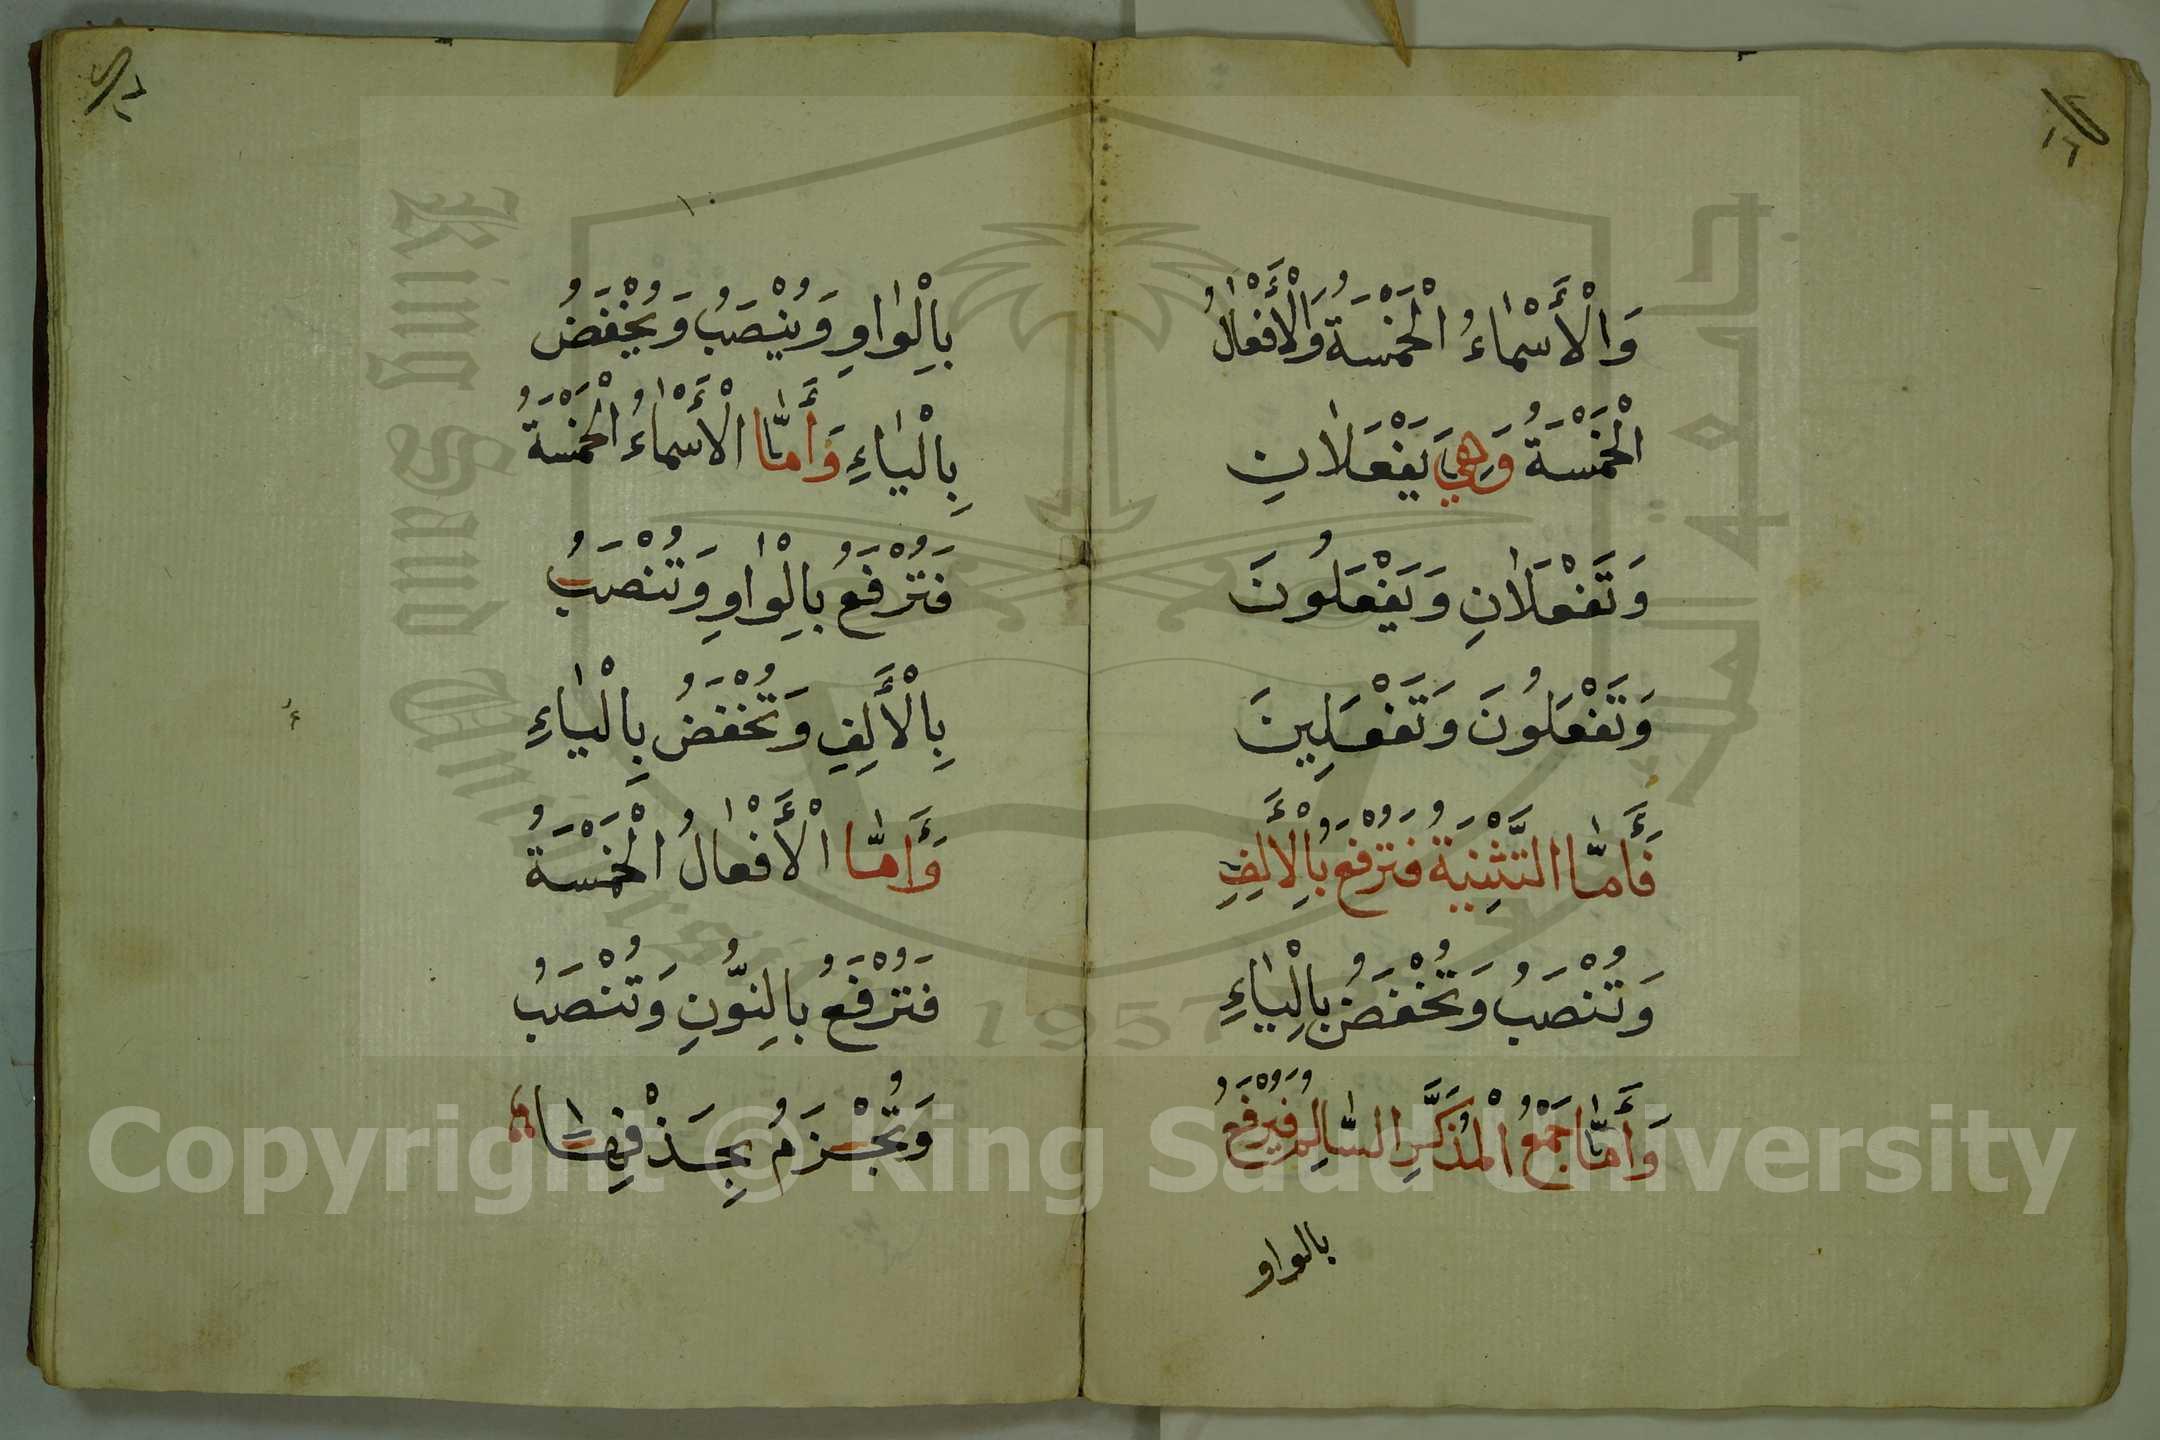 وَالْأَسْمَاءُ الْخَمْسَةُ وَالْأَفْعَالُ
الْخَمْسَةُ وَهِيَ يَفْعَلَانِ
وَتَفْعَلَانِ وَيَفْعَلُونَ
وَتَفْعَلُونَ وَتَفْعَلِينَ
فَأَمَّا التَّثْنِيَةُ فَتُرْفَعُ بِالْأَلِفِ
وَتُنْصَبُ وَتُخْفَضُ بِالْيَاءِ
وَأَمَّا جَمْعُ الْمُذَكَّرِ السَّالِمُ فَيُرْفَعُ
بالواو
١٠
بِالْوَاوِ وَيُنْصَبُ وَيُخْفَضُ
بِالْيَاءِ وَأَمَّا الْأَسْمَاءُ الْخَمْسَةُ
فَتُرْفَعُ بِالْوَاوِ وَتُنْصَبُ
بِالْأَلِفِ وَتُخْفَضُ بِالْيَاءِ
وَأَمَّا الْأَفْعَالُ الْخَمْسَةُ
فَتُرْفَعُ بِالنُّونِ وَتُنْصَبُ
وَتُجْزَمُ بِحَذْفِهَا
جامعة الملك
King Saud University
1957
Copyright © King Saud University